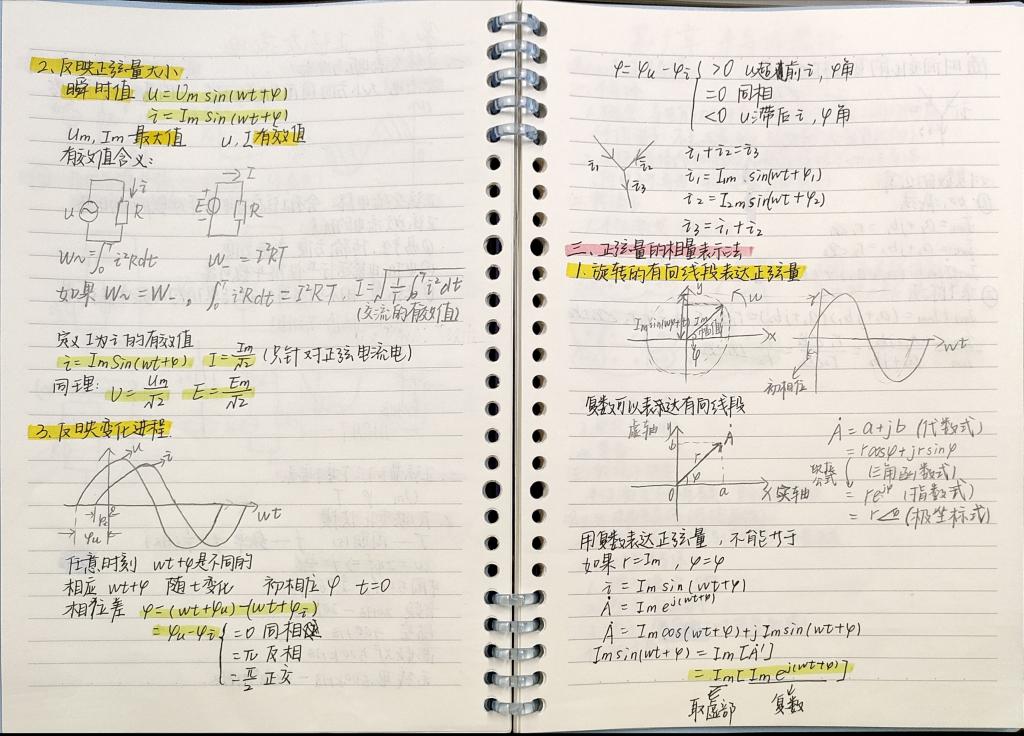 2、反映正弦量大小
瞬时值 u=Um sin(wt+φ)
i=Im sin(wt+φ)
Um, Im 最大值 u, I 有效值
有效值含义:
i I
u R E R
W~=∫₀ᵀi²Rdt W_=I²RT
如果 W~=W-, ∫₀ᵀi²Rdt=I²RT, I=√(1/T ∫₀ᵀi²dt)
(交流的有效值)
定义I为i的有效值
i=ImSin(wt+φ) I=Im/√2 (只针对正弦电流电)
同理: U=Um/√2 E=Em/√2
3、反映变化进程
u i
wt
φi
φu
任意时刻 wt+φ是不同的
相应 wt+φ 随t变化 初相位 φ t=0
相位差 φ=(wt+φu)-(wt+φi)
=φu-φi {=0 同相
=π 反相
=π/2 正交
φ=φu-φi {>0 u超前i,φ角
=0 同相
<0 u滞后i,φ角
i₁ i₂ i₃
i₁+i₂=i₃
i₁=I₁m sin(wt+φ₁)
i₂=I₂m sin(wt+φ₂)
i₃=i₁+i₂
三、正弦量的相量表示法
1、旋转的有向线段表达正弦量
y w
Im
x
φ
wt
初相位
复数可以来表达有向线段
虚轴 y
b Ȧ
r
φ
0 a X 实轴
Ȧ=a+jb (代数式)
=rcosφ+jrsinφ
欧拉公式 (三角函数式)
=re^jφ (指数式)
=r∠φ (极坐标式)
用复数表达正弦量,不能等于
如果 r=Im, φ=φ
i=Imsin(wt+φ)
Ȧ=Ime^j(wt+φ)
Ȧ=Imcos(wt+φ)+jImsin(wt+φ)
Imsin(wt+φ)=Im[Ȧ']
=Im[Ime^j(wt+φ)]
取虚部 复数